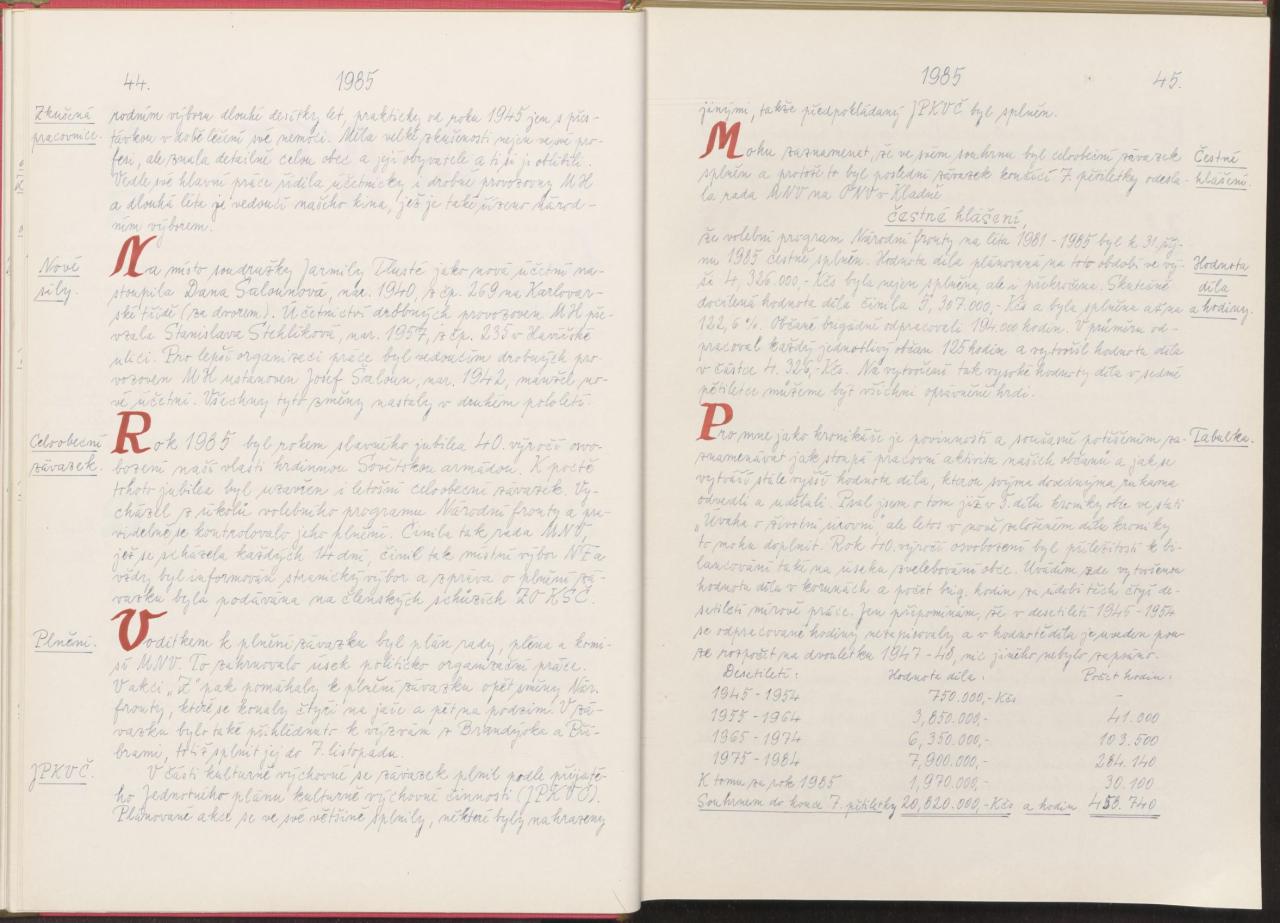 44.
1985
Zkušená
pracovnice.
rodním výboru dlouhé desítky let, prakticky od roku 1945 jen s přes-
távkou v době léčení své nemoci. Měla velké zkušenosti nejen ve své pro-
fesi, ale znala detailně celou obec a její obyvatele a ti si jí oblíbili.
Vedle své hlavní práce řídila účetnicky i drobné provozovny MH
a dlouhá léta je vedoucí našeho kina, jež je také řízeno národ-
ním výborem.
Nové
síly.
Na místo soudružky Jarmily Tlusté jako nová účetní na-
stoupila Dana Šalounová, nar. 1940, z čp. 269 na Karlovar-
ské třídě (za dvorem). Účetnictví drobných provozoven MH pře-
vzala Stanislava Stehlíková, nar. 1957, z čp. 235 v Havířské
ulici. Pro lepší organizaci práce byl vedoucím drobných pro-
vozoven MH ustanoven Josef Šaloun, nar. 1942, manžel no-
vé účetní. Všechny tyto změny nastaly v druhém pololetí.
Celoobecní
závazek.
Rok 1985 byl rokem slavného jubilea 40. výročí osvo-
bození naší vlasti hrdinnou Sovětskou armádou. K poctě
tohoto jubilea byl uzavřen i letošní celoobecní závazek. Vy-
cházel z úkolů volebního programu Národní fronty a pra-
videlně se kontrolovalo jeho plnění. Činila tak rada MNV,
jež se scházela každých 14 dní, činil tak místní výbor NF a
vždy byl informován stranický výbor a zpráva o plnění zá-
vazku byla podávána na členských schůzích ZO KSČ.
Plnění.
Vodítkem k plnění závazku byl plán rady, pléna a komi-
sí MNV. To zahrnovalo úsek politicko organizační práce.
V akci „Z" pak pomáhaly k plnění závazku opět směny Nár.
fronty, které se konaly čtyři na jaře a pět na podzim. V zá-
vazku bylo také přihlédnuto k výzvám z Brandýska a Pří-
brami, totiž splnit jej do 7. listopadu.
JPKVČ.
V části kulturně výchovné se závazek plnil podle přijaté-
ho Jednotného plánu kulturně výchovné činnosti (JPKVČ).
Plánované akce se ve své většině splnily, některé byly nahrazeny
1985
45.
jinými, takže předpokládaný JPKVČ byl splněn.
Mohu zaznamenat, že ve svém souhrnu byl celoobecní závazek
splněn a protože to byl poslední závazek končící 7. pětiletky odesla-
la rada MNV na ONV v Kladně
Čestné
hlášení.
čestné hlášení,
že volební program Národní fronty na léta 1981 - 1985 byl k 31. říj-
nu 1985 čestně splněn. Hodnota díla plánovaná na toto období ve vý-
ši 4,326.000,- Kčs byla nejen splněna, ale i překročena. Skutečně
docílená hodnota díla činila 5,307.000,- Kčs a byla splněna až na
122,6 %. Občané brigádně odpracovali 194.000 hodin. V průměru od-
pracoval každý jednotlivý občan 125 hodin a vytvořil hodnotu díla
v částce 4.326,- Kčs. Na vytvoření tak vysoké hodnoty díla v sedmé
pětiletce můžeme být všichni oprávněně hrdi.
Hodnota
díla
a hodiny.
Pro mne jako kronikáře je povinností a současně potěšením za-
znamenávat jak stoupá pracovní aktivita našich občanů a jak se
vytváří stále vyšší hodnota díla, kterou svýma dovednýma rukama
odvedli a udělali. Psal jsem o tom již v 3. dílu kroniky obce ve stati
„Úvaha o životní úrovni", ale letos v nově založeném dílu kroniky
to mohu doplnit. Rok 40. výročí osvobození byl příležitostí k bi-
lancování také na úseku zvelebování obce. Uvádím zde vytvořenou
hodnotu díla v korunách a počet brig. hodin za údobí těch čtyř de-
setiletí mírové práce. Jen připomínám, že v desetiletí 1945 - 1954
se odpracované hodiny nezapisovaly a v hodnotě díla je uveden pou-
ze rozpočet na dvouletku 1947 - 48, nic jiného nebylo zapsáno.
Tabulka.
Desetiletí: Hodnota díla: Počet hodin:
1945 - 1954 750.000,- Kčs -
1955 - 1964 3,850.000,- 41.000
1965 - 1974 6,350.000,- 103.500
1975 - 1984 7,900.000,- 284.140
K tomu za rok 1985 1,970.000,- 30.100
Souhrnem do konce 7. pětiletky 20,820.000,- Kčs a hodin 458.740